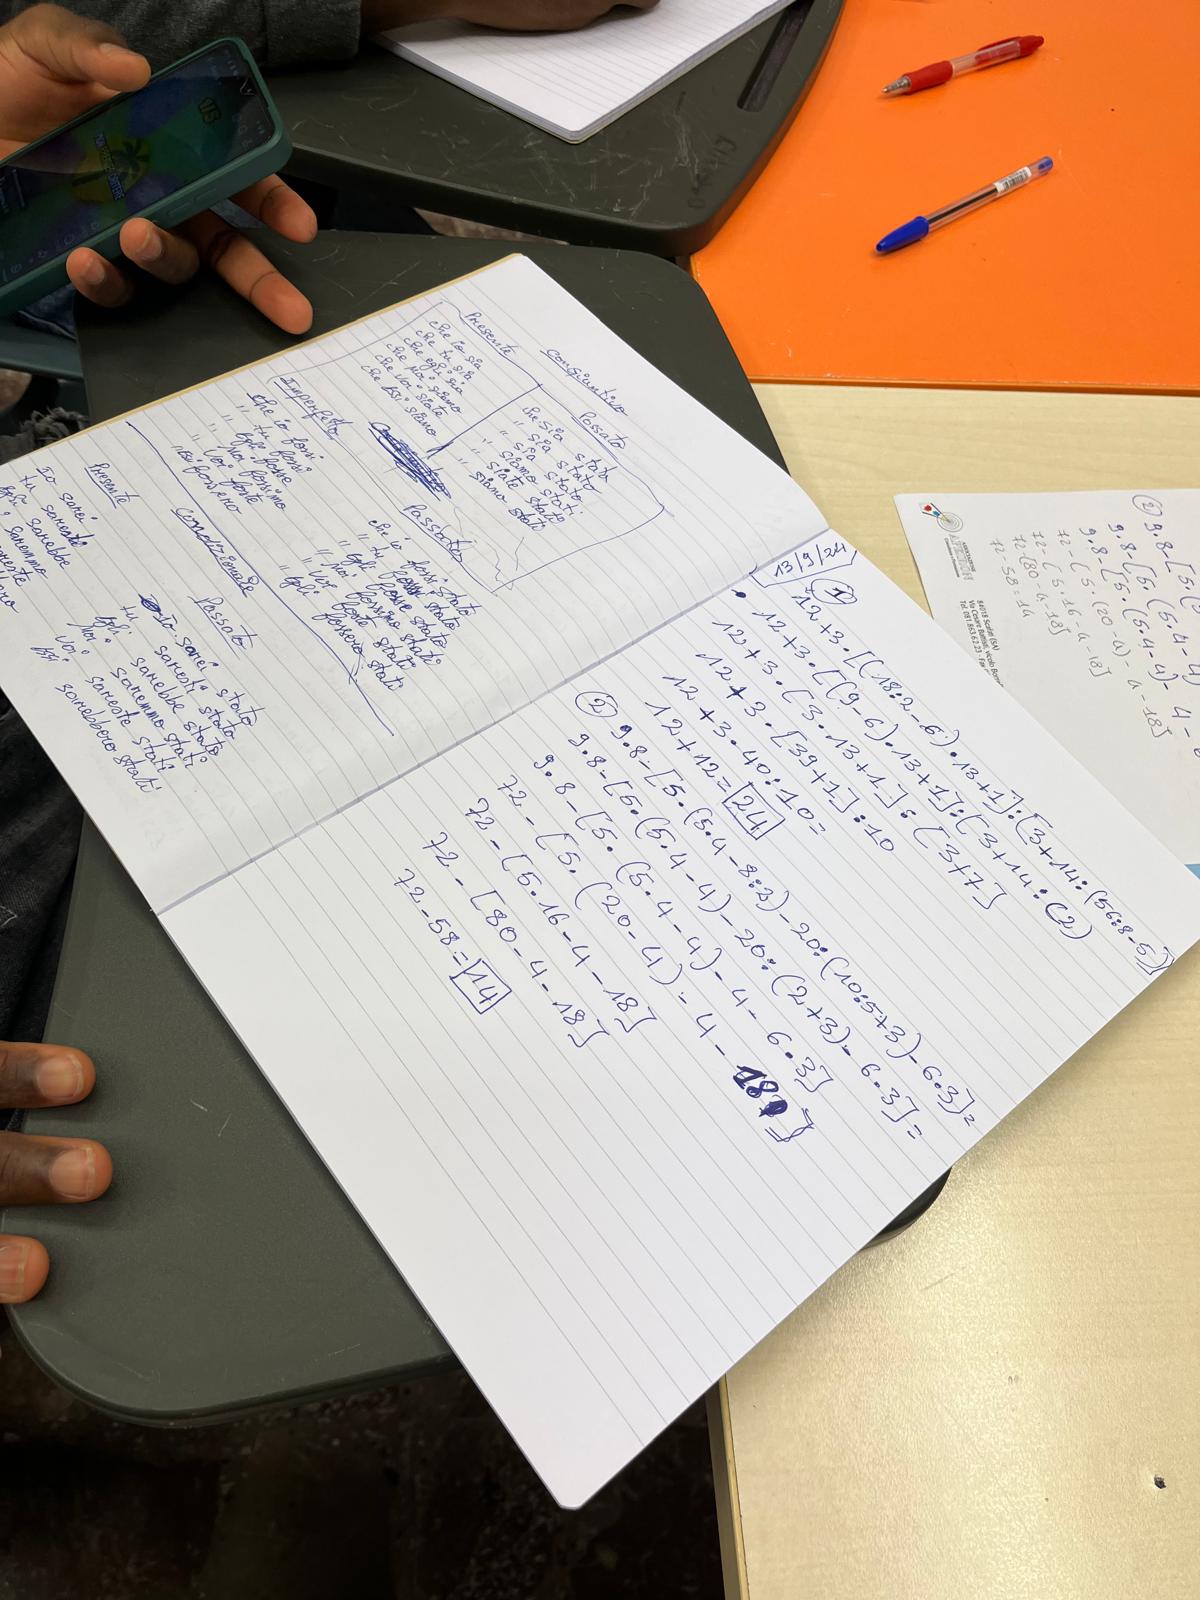 Congiuntivo
Presente
che io sia
che tu sia
che egli sia
che noi siamo
che voi siate
che essi siano
Passato
che sia stato
" sia stato
" sia stato
" siamo stati
" siate stati
" siano stati
Imperfetto
che io fossi
" tu fossi
" egli fosse
" noi fossimo
" voi foste
Passato
che io fossi stato
" tu fossi stato
" egli fosse stato
" noi fossimo stati
" voi foste stati
" egli fossero stati
Condizionale
Presente
Io sarei
tu saresti
egli sarebbe
saremmo
sareste
Passato
io sarei stato
tu saresti stato
egli sarebbe stato
noi saremmo stati
voi sareste stati
essi sarebbero stati
13/9/24
①
12+3·[(18:2-6)·13+1]:[3+14:(56:8-5)]
12+3·[(9-6)·13+1]:(3+14:(2)
12+3·(3·13+1]:(3+7]
12+3·[39+1]:10
12+3·40:10=
12+12=24
② 9·8-[5·(5·4-8:2)-20:(10:5+3)-6·3]=
9·8-[5·(5·4-4)-20:(2+3)-6·3]=
9·8-[5·(5·4-4)-4-6·3]
72-[5·(20-4)-4-18]
72-[5·16-4-18]
72-[80-4-18]
72-58=14
② 9·8-[5·
9·8-[5·(5·4-4)
9·8-[5·(5·4-4)-4-
72-(5·(20-4)-4-18]
72-(5·16-4-18]
72-(80-4-18]
72-58=14
84018 Scafati (SA)